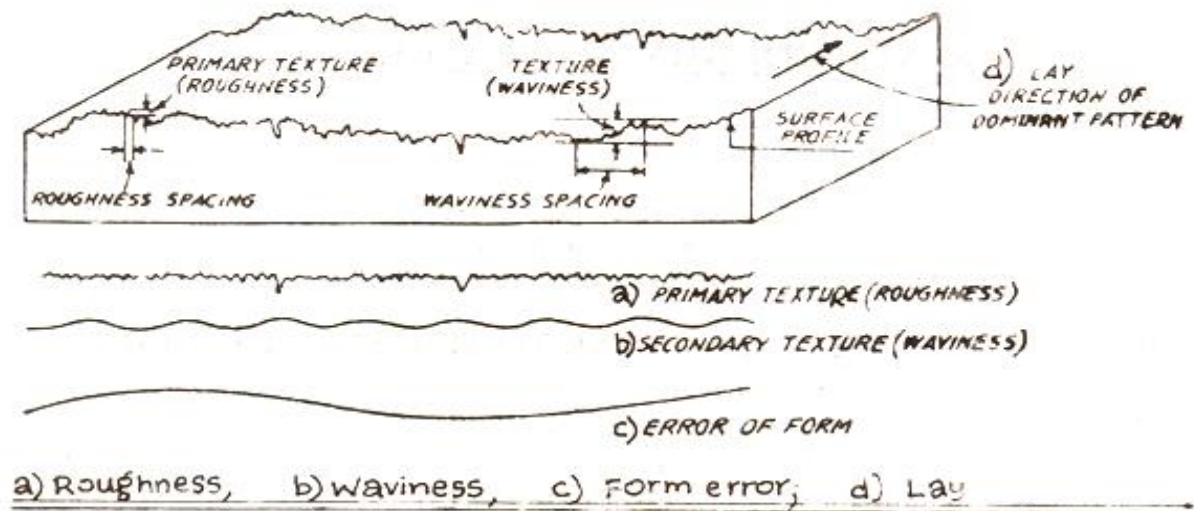 PRIMARY TEXTURE
(ROUGHNESS)
TEXTURE
(WAVINESS)
d) LAY
DIRECTION OF
DOMINANT PATTERN
SURFACE
PROFILE
ROUGHNESS SPACING
WAVINESS SPACING
a) PRIMARY TEXTURE (ROUGHNESS)
b) SECONDARY TEXTURE (WAVINESS)
c) ERROR OF FORM
a) Roughness, b) Waviness, c) Form error, d) Lay